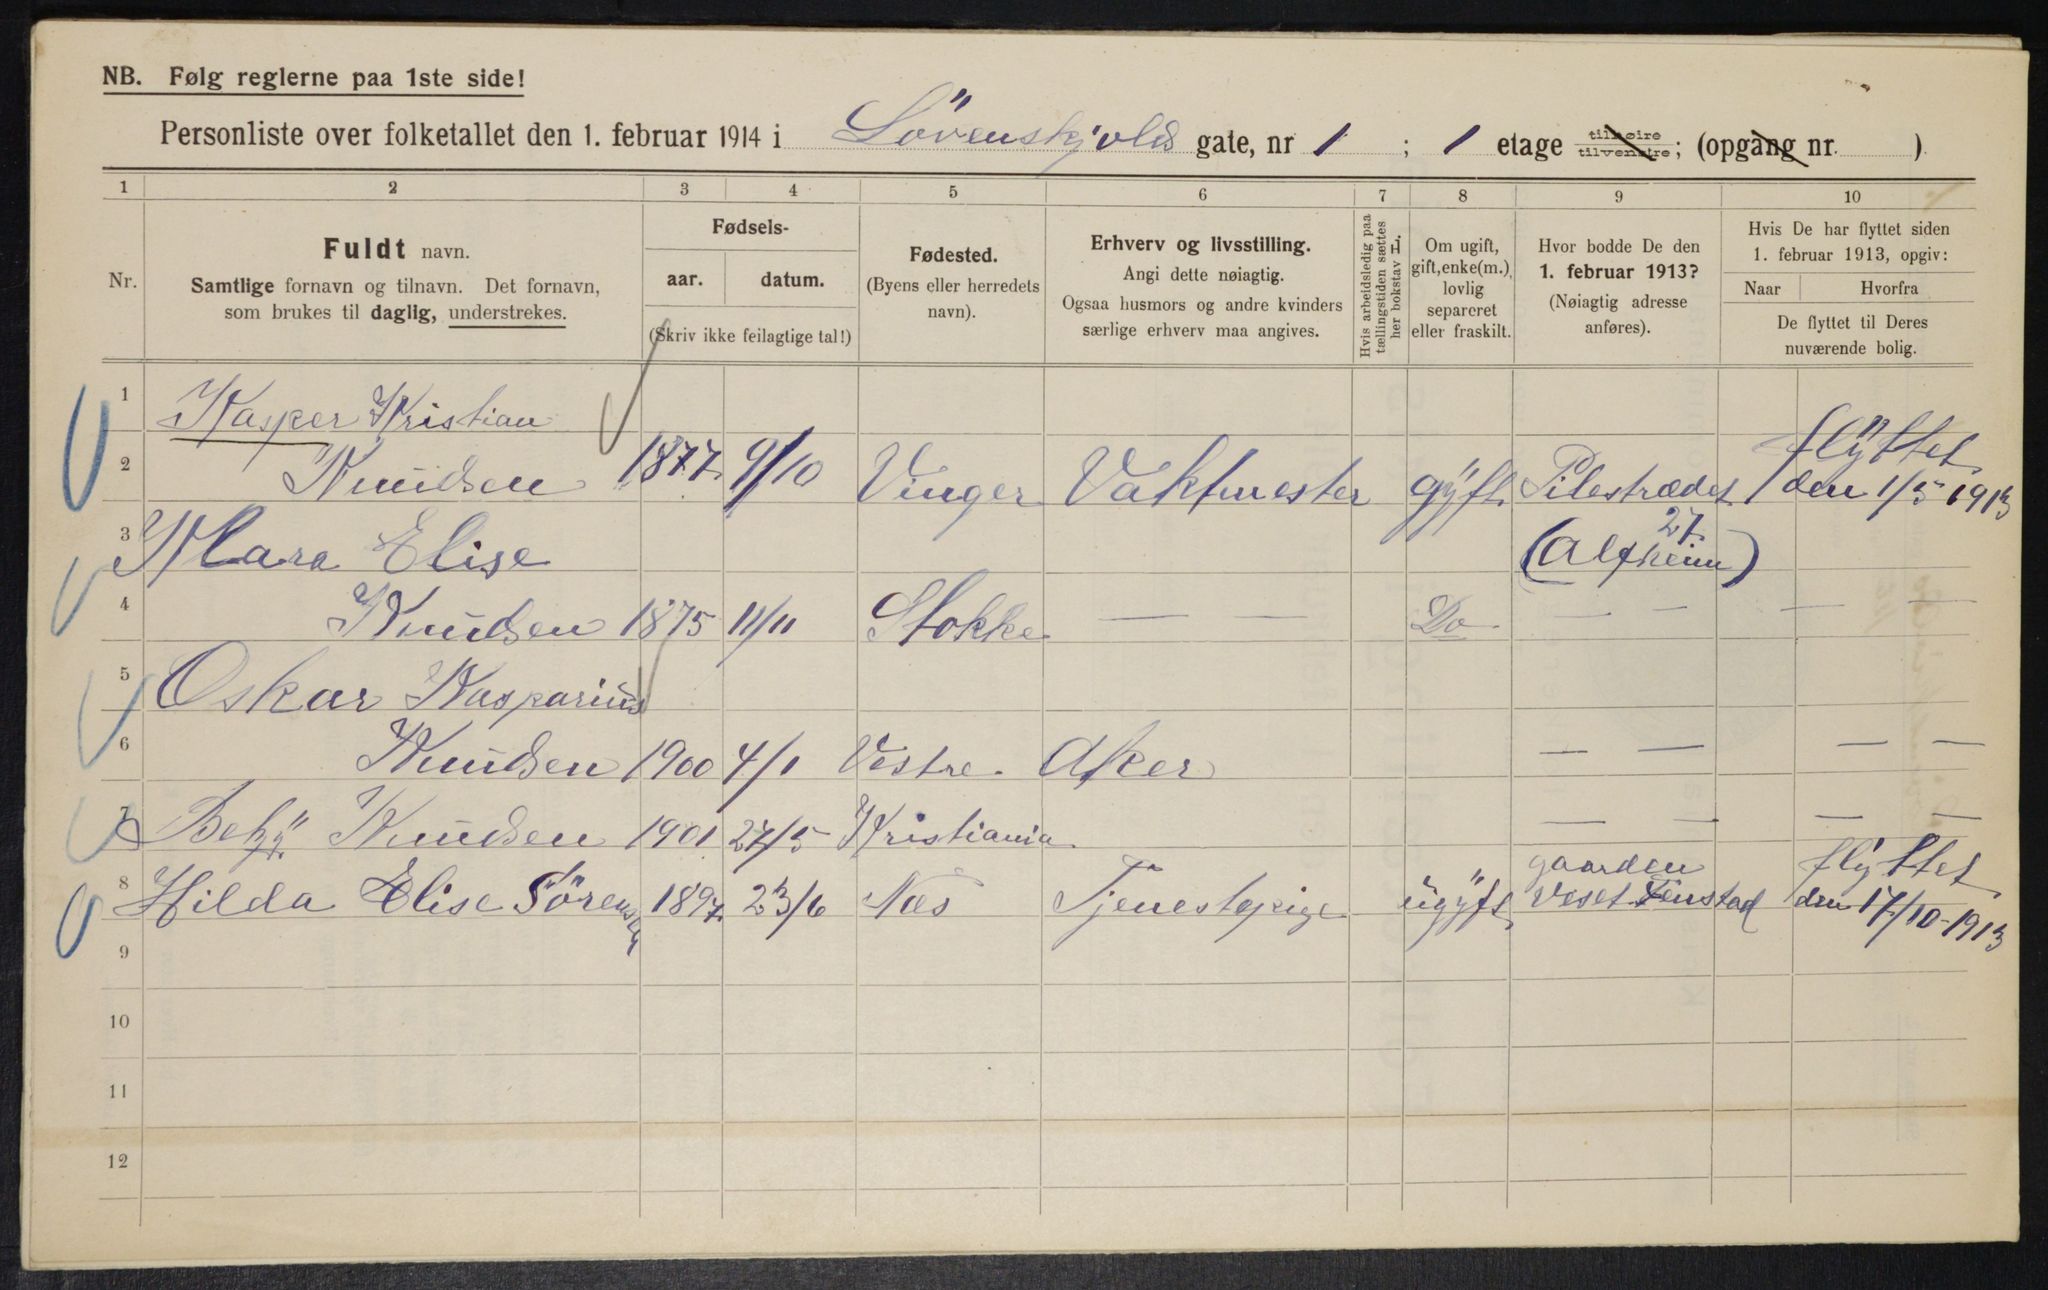 NB. Følg reglerne paa 1ste side!
Personliste over folketallet den 1. februar 1914 i Lövenskjolds gate, nr 1 ; 1 etage tilhøire tilvenstre; (opgang nr. )
1 2 3 4 5 6 7 8 9 10
Nr.
Fuldt navn.
Samtlige fornavn og tilnavn. Det fornavn,
som brukes til daglig, understrekes.
Fødsels-
aar. datum.
(Skriv ikke feilagtige tal!)
Fødested.
(Byens eller herredets
navn).
Erhverv og livsstilling.
Angi dette nøiagtig.
Ogsaa husmors og andre kvinders
særlige erhverv maa angives.
Hvis arbeidsledig paa
tællingstiden sættes
her bokstav L.
Om ugift,
gift, enke(m.),
lovlig
separeret
eller fraskilt.
Hvor bodde De den
1. februar 1913?
(Nøiagtig adresse
anføres).
Hvis De har flyttet siden
1. februar 1913, opgiv:
Naar Hvorfra
De flyttet til Deres
nuværende bolig.
1 Kasper Kristian flÿttet
2 Knudsen 1877 9/10 Vinger Vaktmester gÿft Pilestrædet den 1/5 1913
27
3 Klara Elise (Alfheim)
4 Knudsen 1875 11/11 Stokke — — Do — — — —
5 Oskar Kasparius
6 Knudsen 1900 4/1 Vestre Aker — — — —
7 Betzÿ Knudsen 1901 27/5 Kristiania — — — —
gaarden flÿttet
8 Hilda Elise Sörensen 1897 23/6 Næs Tjenestepige ugÿft Tenstad den 17/10-1913
9
10
11
12